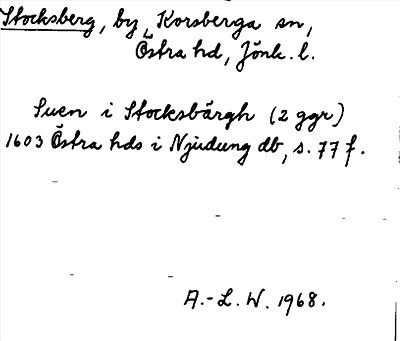 Stocksberg, by i Korsberga sn,
Östra hd, Jönk. l.
Suen i Stocksbärgh (2 ggr)
1603 Östra hds i Njudung db, s. 77 f.
A.-L. W. 1968.